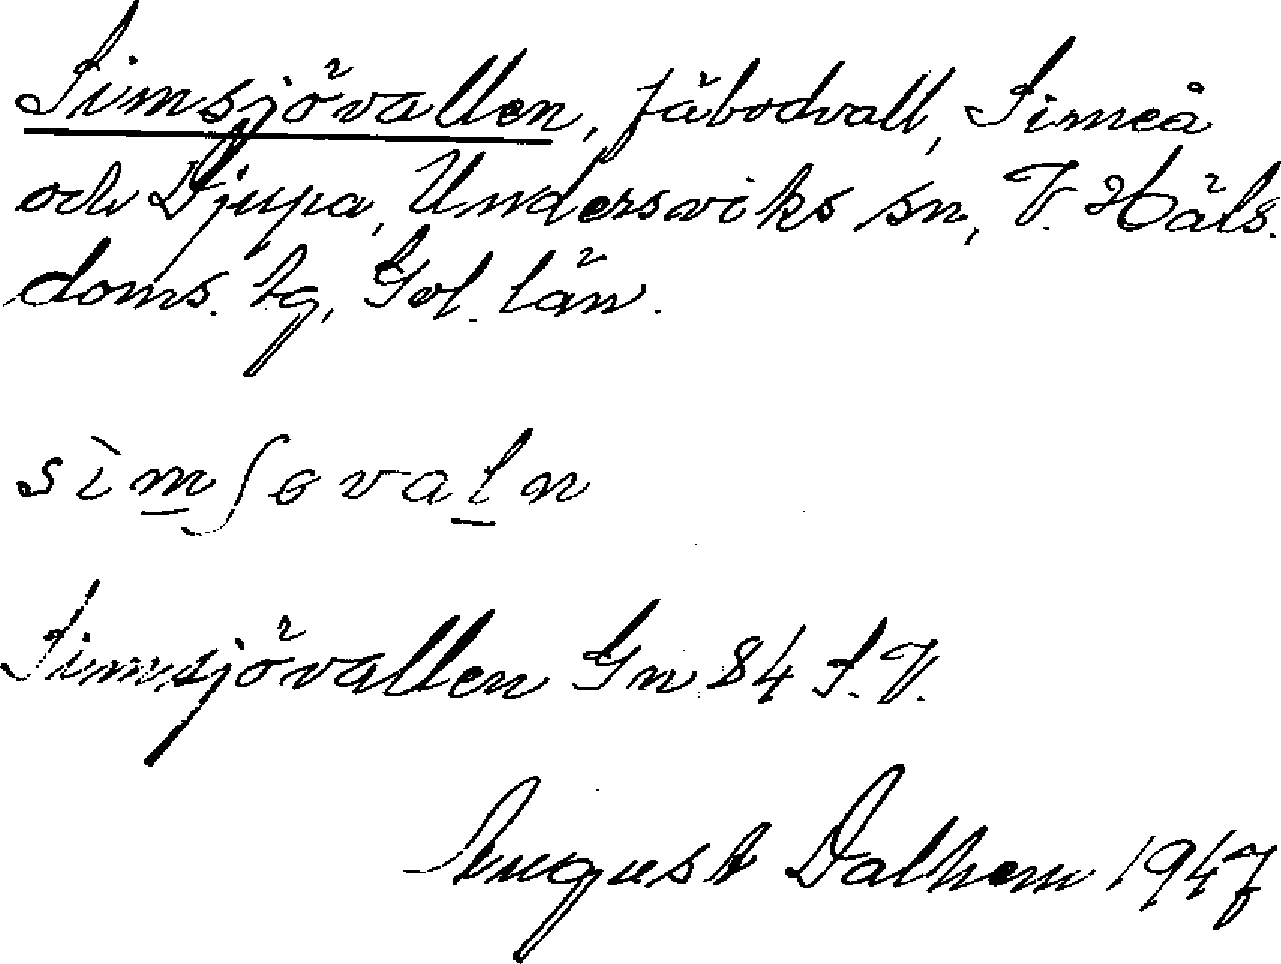 Simsjövallen, fäbodvall, Simeå
och Djupa, Undersviks sn, V. Häls.
doms. tg, Gvl. län.
sìmʃɵvaln
Simsjövallen Gn 84 S.V.
August Dalhem 1947